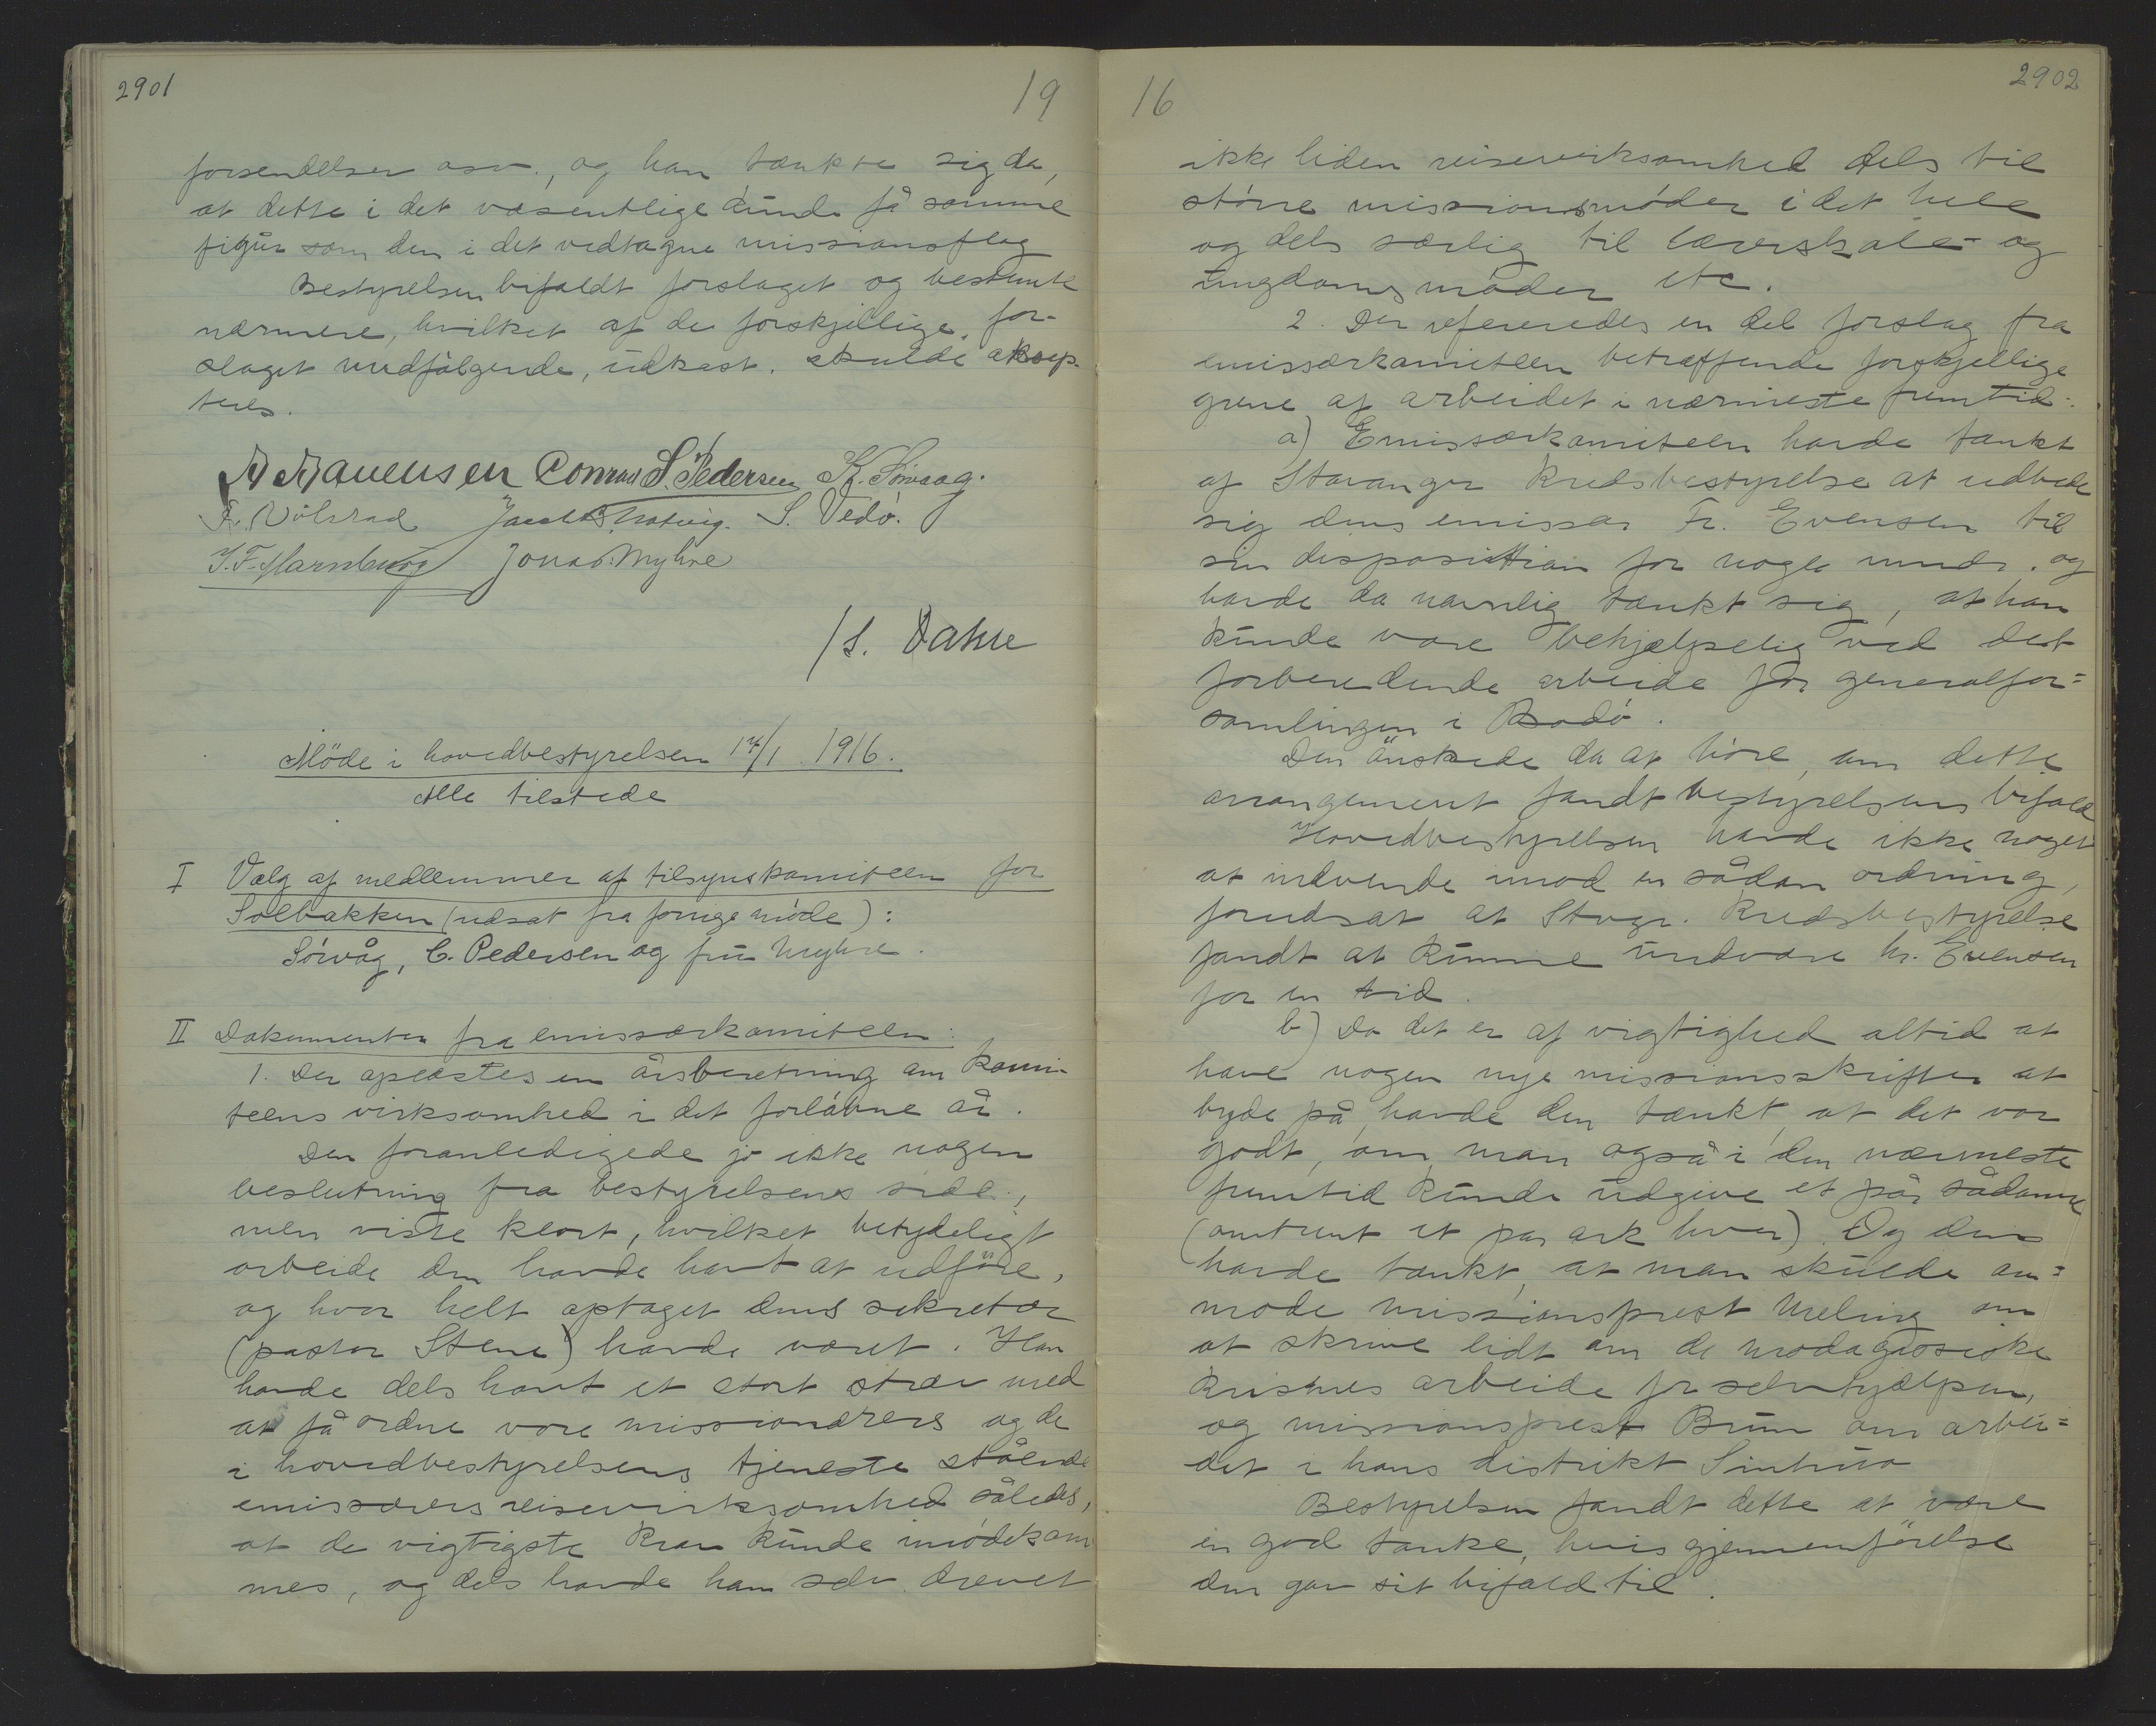 2901
19
forsendelser osv., og han tænkte sig da,
at dette i det væsentlige kunde få samme
figur som den i det vedtagne missionsflag
Bestyrelsen bifaldt forslaget og bestemte
nærmere, hvilket af de forskjellige, for-
slaget medfølgende, udkast, skulde aksep-
teres.
Conrad S. Pedersen K. Sörvaag.
S. Vedö.
Jonas Myhre
/ L. Dahle
Möde i hovedbestyrelsen 14/1 1916.
Alle tilstede
I Valg af medlemmer af tilsynskomiteen for
Solbakken (udsat fra forrige möde):
Sörvåg, C. Pedersen og fru Myhre.
II Dokumenter fra emissærkomiteen:
1. Der oplæstes en årsberetning om komi-
teens virksomhed i det forløbne år.
Den foranledigede jo ikke nogen
beslutning fra bestyrelsens side,
men viste klart, hvilket betydeligt
arbeide den havde havt at udföre,
og hvor helt optaget dens sekretær
(pastor Stene) havde været. Han
havde dels havt et stort stræv med
at få ordne vore missionærers og de
i hovedbestyrelsens tjeneste stående
emissærers reisevirksomhed således,
at de vigtigste krav kunde imödekom
mes, og dels havde han selv drevet
16
2902
ikke liden reisevirksomhed dels til
större missionsmöder i det hele
og dels særlig til lærerskole- og
ungdomsmöder etc.
2. Der refereredes en del forslag fra
emissærkomiteen betræffende forskjellige
grene af arbeidet i nærmeste fremtid:
a) Emissærkomiteen havde tænkt
af Stavanger kredsbestyrelse at udbede
sig dens emissær Fr. Evensen til
sin disposition for nogle mndr. og
havde da navnlig tænkt sig, at han
kunde være behjælpelig ved det
forberedende arbeide for generalfor=
samlingen i Bodö.
Den önskede da at höre, om dette
arrangement fandt bestyrelsens bifald
Hovedbestyrelsen havde ikke noget
at indvende imod en sådan ordning,
forudsat at Stvgr. kredsbestyrelse
fandt at kunne undvære hr. Evensen
for en tid.
b) Da det er af vigtighed altid at
have nogen nye missionsskrifter at
byde på, havde den tænkt, at det var
godt, om man også i den nærmeste
fremtid kunde udgive et par sådanne
(omtrent et par ark hver). Og den
havde tænkt, at man skulde an=
mode missionsprest Meling om
at skrive lidt om de madagassiske
kristnes arbeide for selvhjælpen,
og missionsprest Brun om arbei=
det i hans distrikt
Bestyrelsen fandt dette at være
en god tanke, hvis gjennemförelse
den gav sit bifald til.